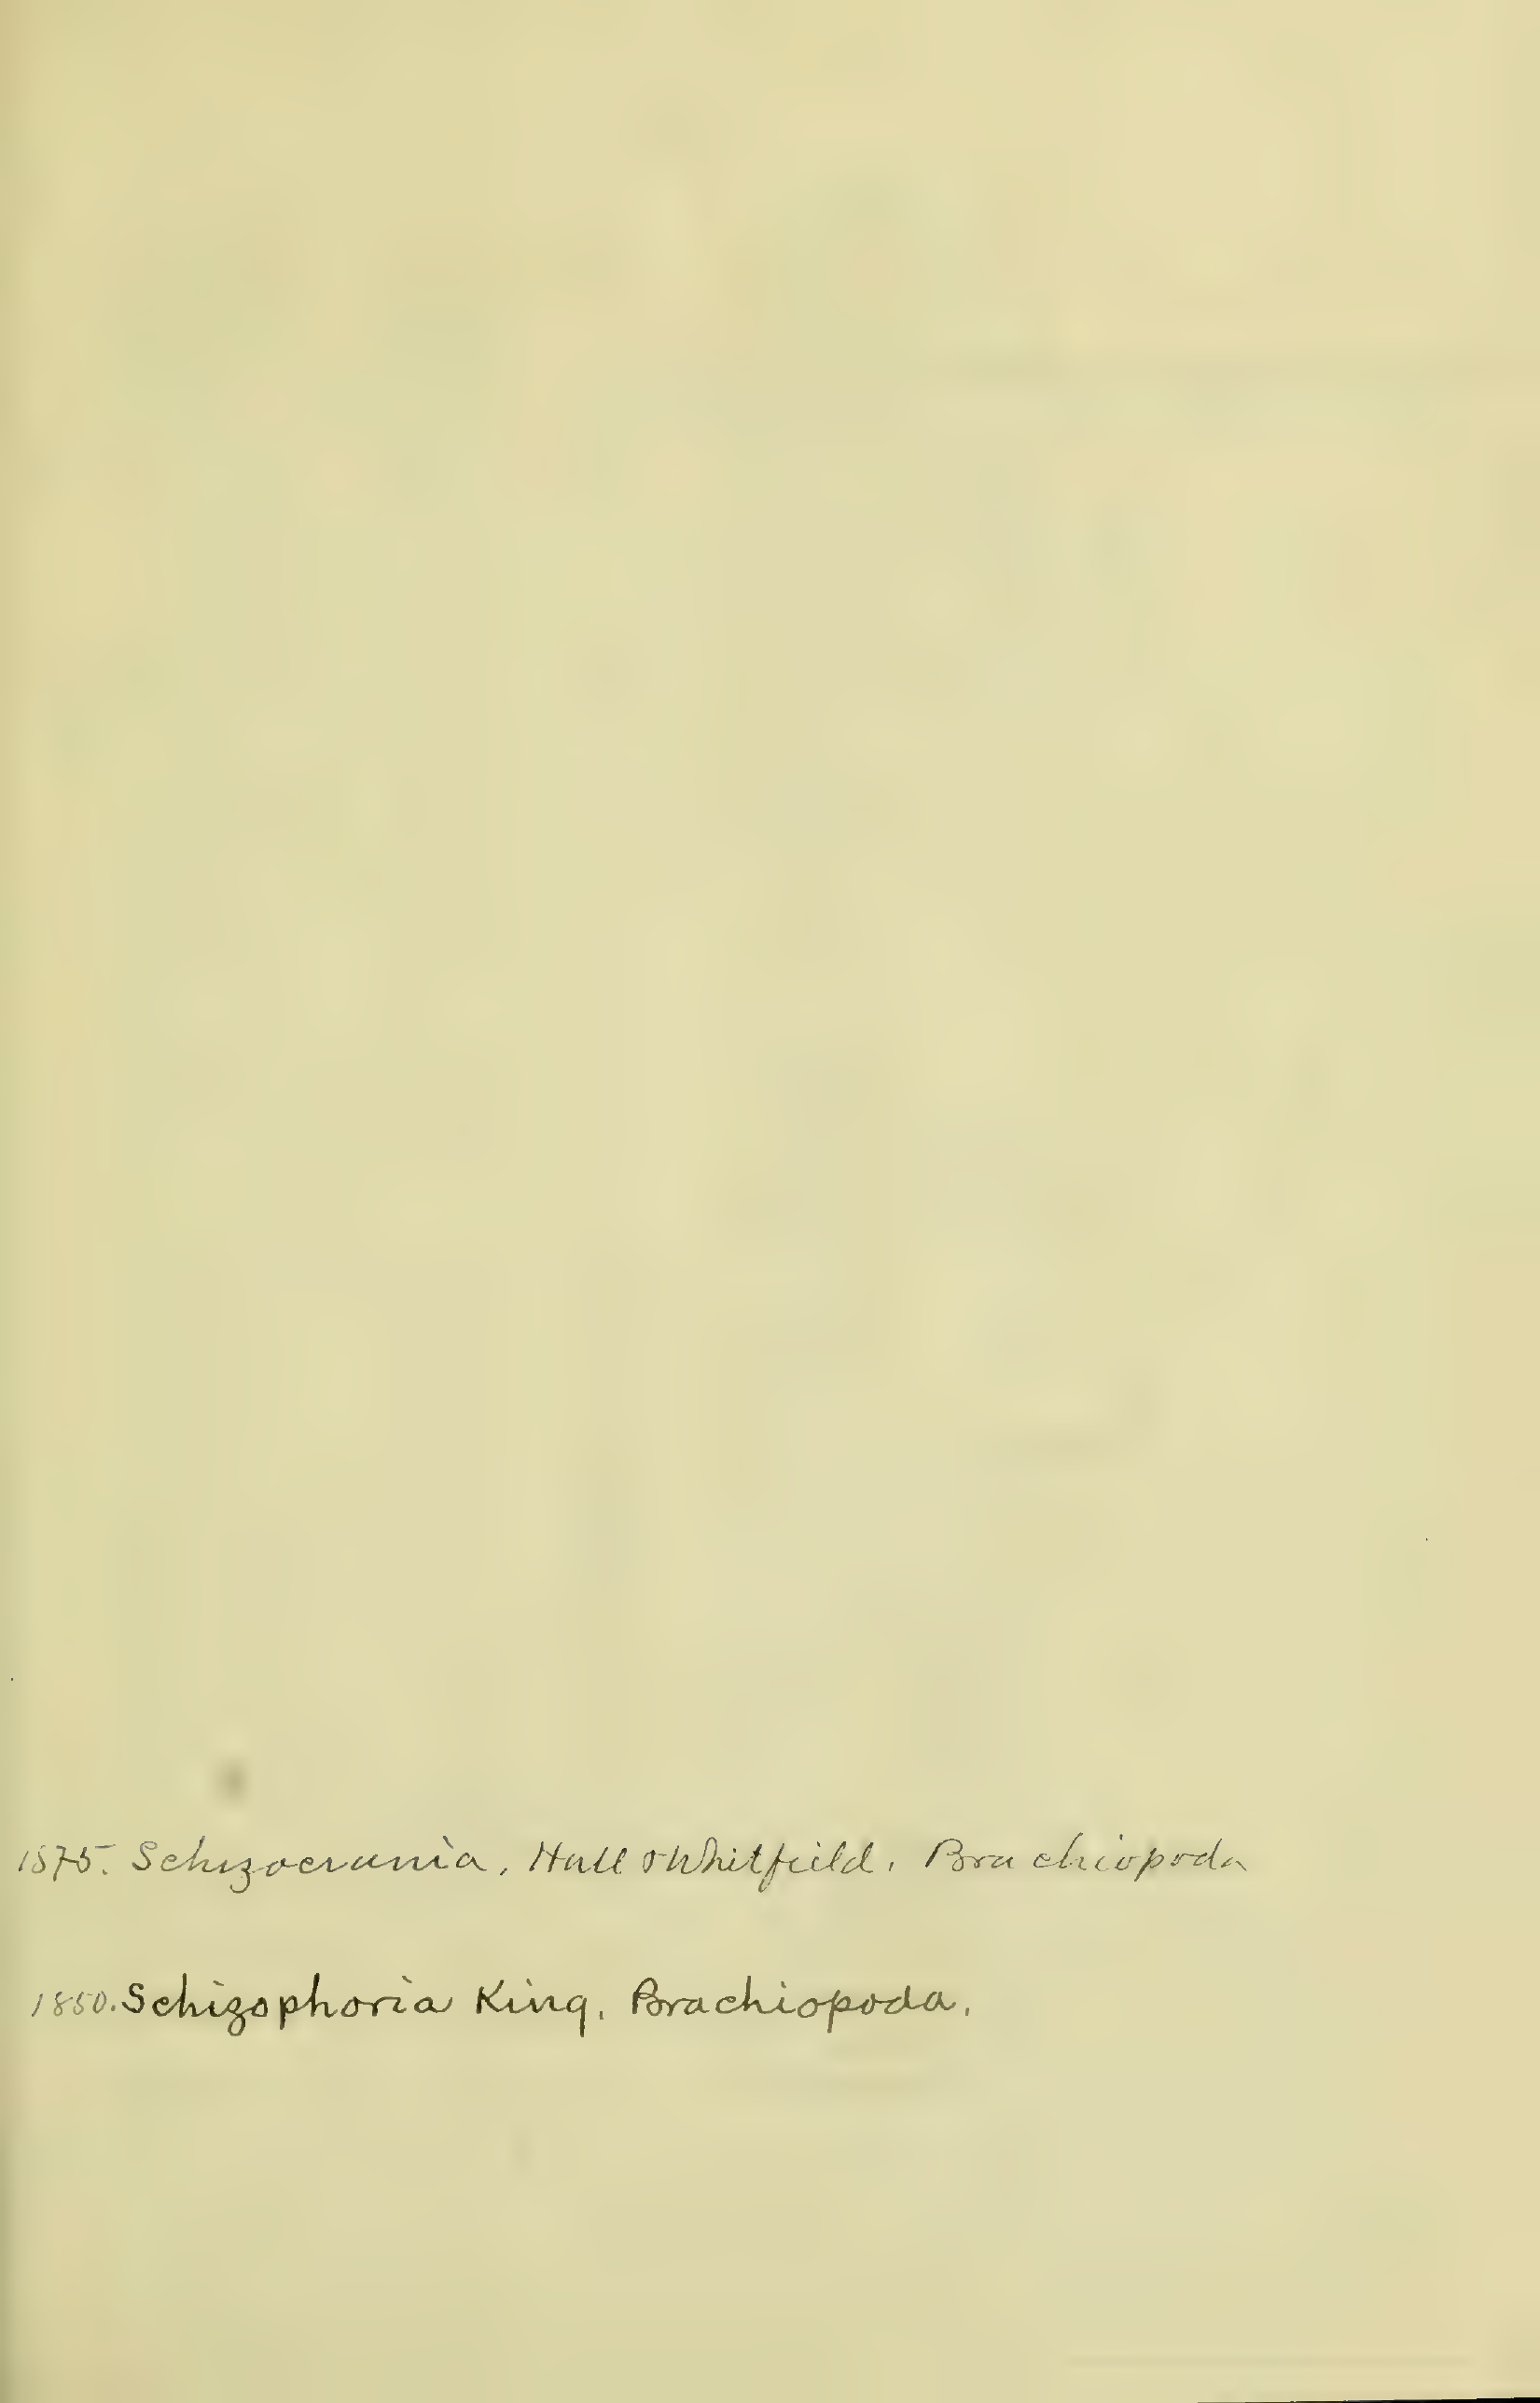 1875. Schizocrania, Hall & Whitfield, Brachiopoda
1850. Schizophoria King, Brachiopoda.